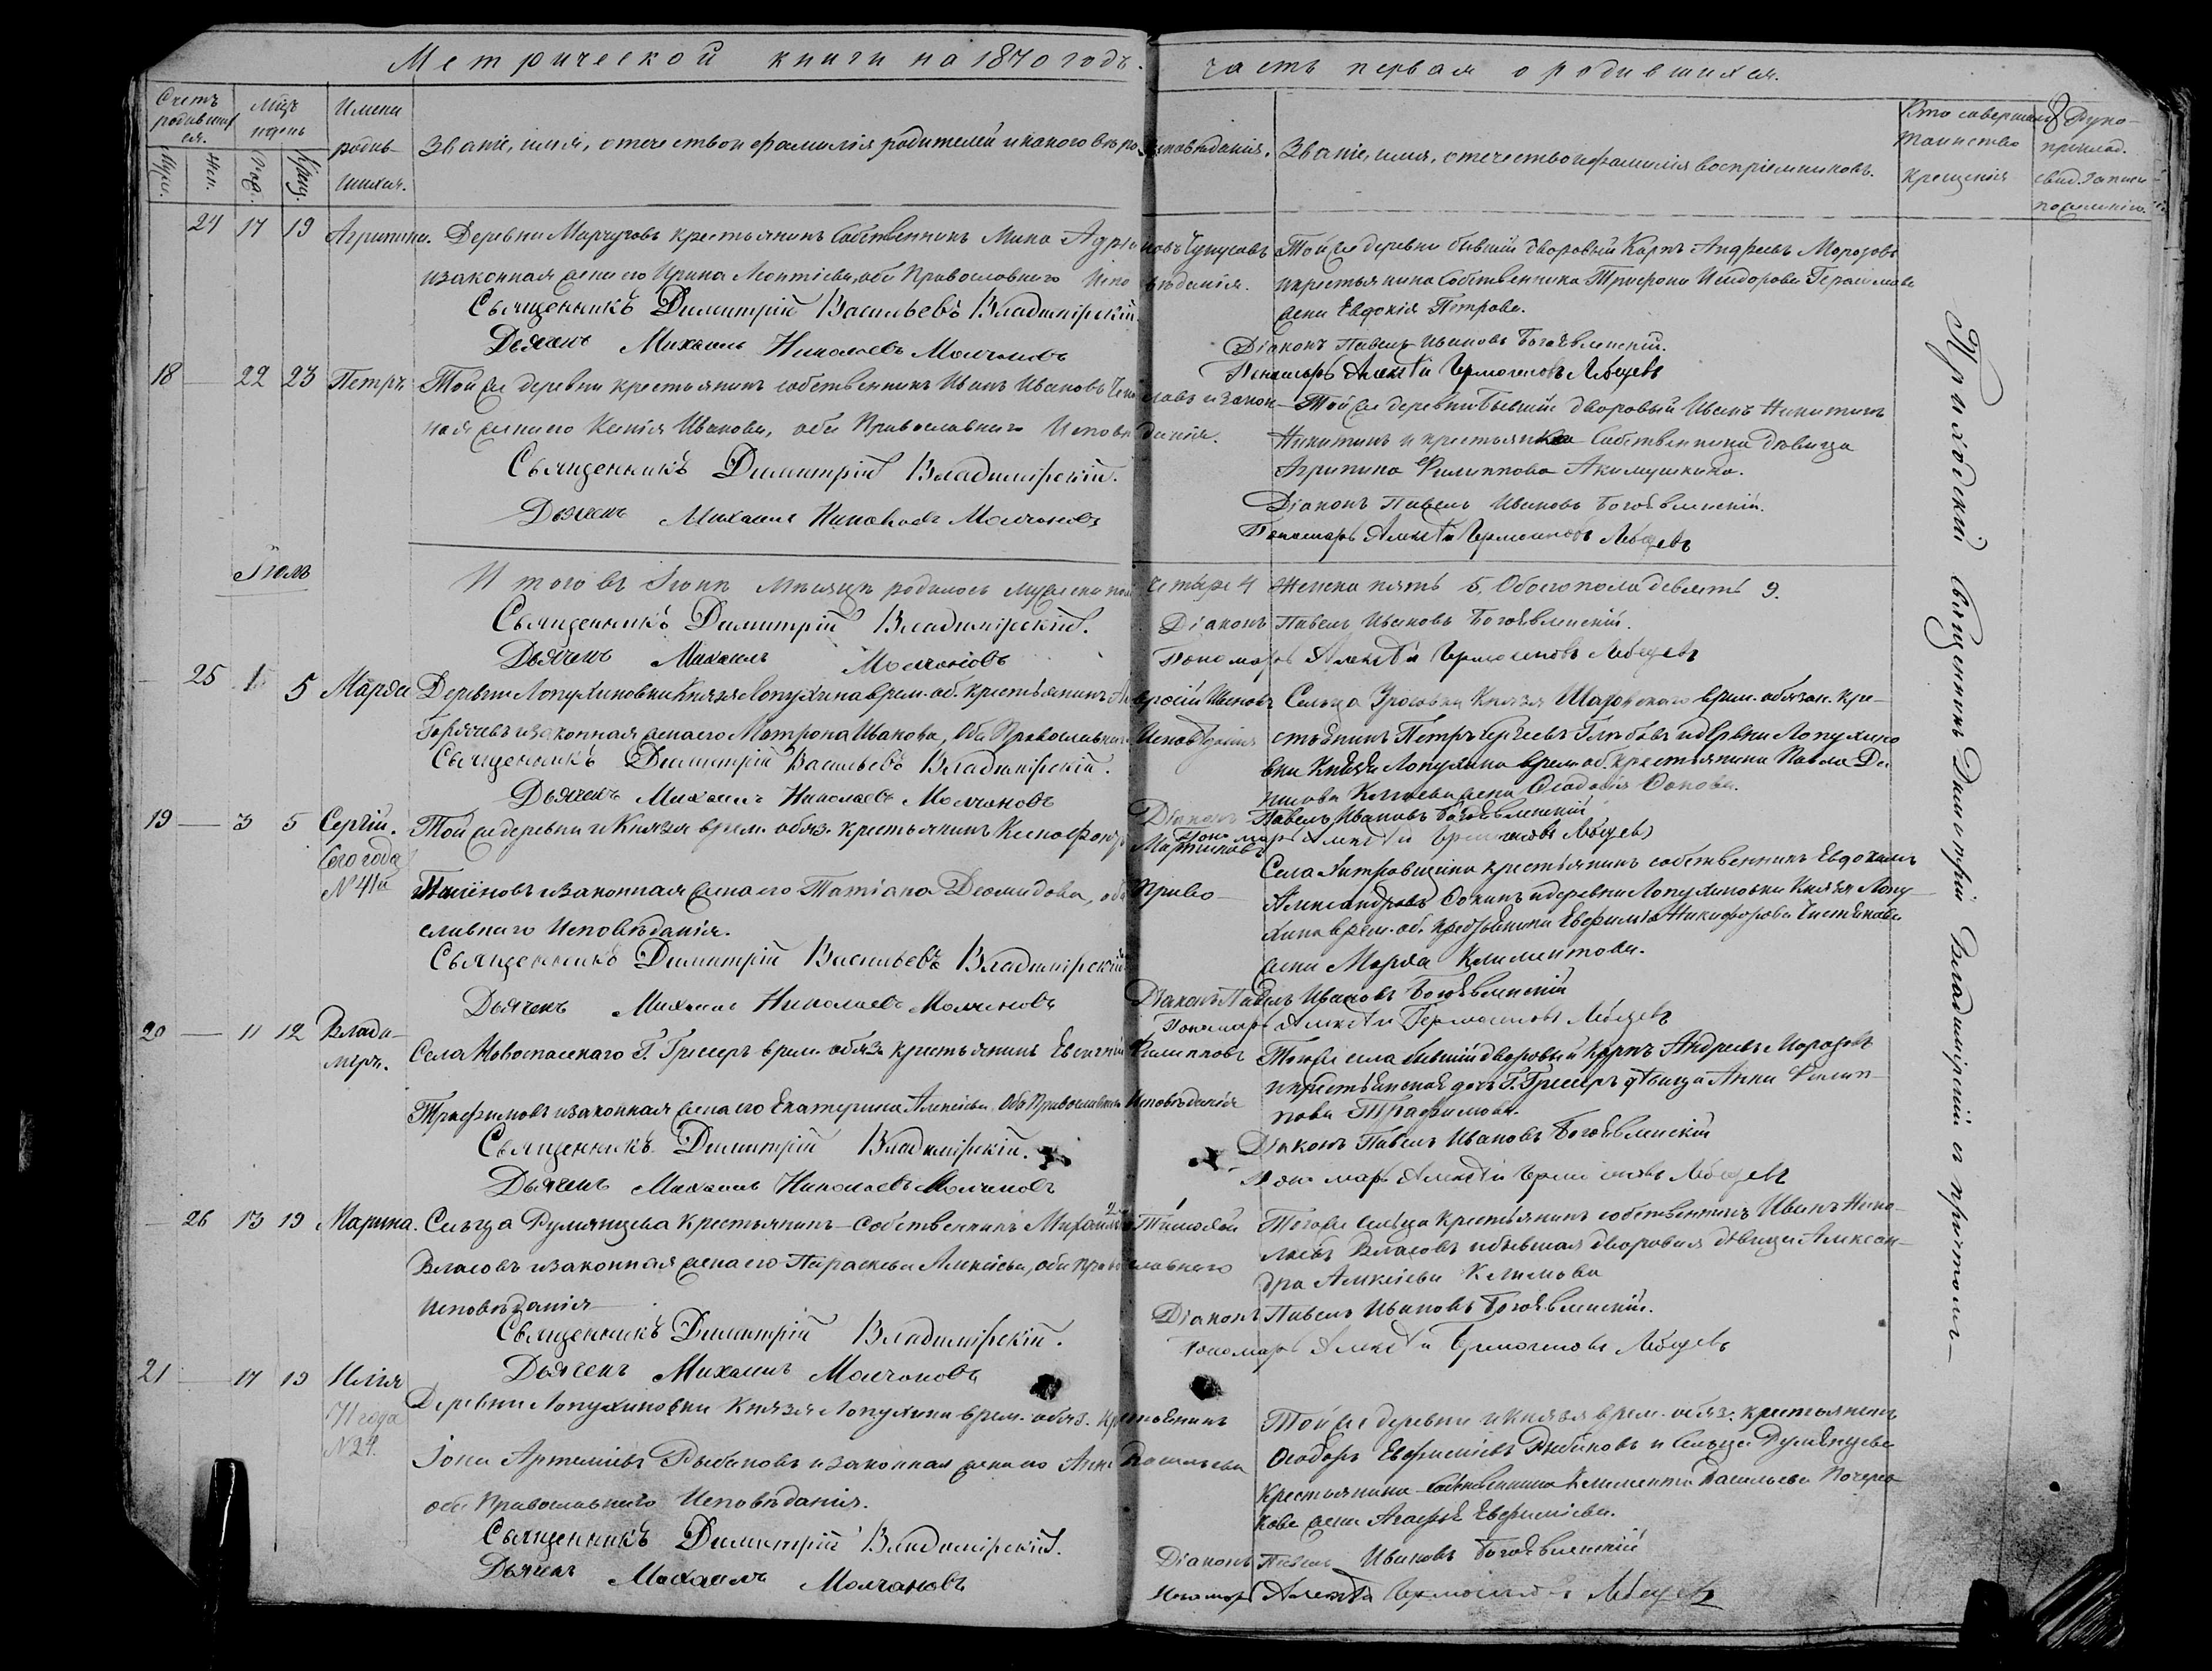 Метрической книги на 1870 годъ. часть первая о родившихся.
Счетъ родившихся. Муж. Жен.
Мѣсяцъ и день Рож. Крещ.
Имена родившихся.
Званіе, имя, отечество и фамилія родителей и какого вѣроисповѣданія.
Званіе, имя, отечество и фамилія воспріемниковъ.
Кто совершалъ таинство крещенія
Рукоприклад. свид. записи по желанію.
8
24 17 19 Агрипина. Деревни Марчуговъ крестьянинъ Собственникъ Мина
и законная жена его Ирина Леонтіева, оба Православного Исповѣданія.
Священникъ Димитрій Васильевъ Владимірскій.
Дьячекъ Михаилъ Николаевъ Молчановъ
Той же деревни бывшій дворовый Карпъ Андреевъ Морозовъ
и крестьянина Собственника Трифона Исидорова Герасимова
жена Евдокія Петрова.
Діаконъ Павелъ Ивановъ Богоявленскій.
Пономарь Алексѣй Гермогеновъ Лебедевъ
18 — 22 23 Петръ Той же деревни крестьянинъ собственникъ Иванъ Ивановъ и закон-
ная жена его Ксенія Иванова, оба Православнаго Исповѣданія.
Священникъ Димитрій Владимірскій.
Дьячекъ Михаилъ Николаевъ Молчановъ
Той же деревни бывшій дворовый Иванъ Никитинъ
Никитинъ и крестьянка Собственница дѣвица
Агрипина Филиппова Акимушкина.
Діаконъ Павелъ Ивановъ Богоявленскій.
Пономарь Алексѣй Гермогеновъ Лебедевъ
Итого въ Іюнѣ мѣсяцѣ родилось мужеска пола четыре 4 Женска пять 5, Обоего пола девять 9.
Священникъ Димитрій Владимірскій.
Дьячекъ Михаилъ Молчановъ
Діаконъ Павелъ Ивановъ Богоявленскій.
Пономарь Алексѣй Гермогеновъ Лебедевъ
Іюль
25 1 5 Марѳа Деревни Лопухиновки Князя Лопухина врем. об. крестьянинъ
Горячевъ и законная жена его Матрона Иванова, Оба Православнаго Исповѣданія
Священникъ Димитрій Васильевъ Владимірскій.
Дьячекъ Михаилъ Николаевъ Молчановъ
Сельца Князя Шаховскаго врем. обязан. кре-
стьянинъ Петръ Сергеевъ Глебовъ и деревни Лопухино
вки Князя Лопухина врем. об. крестьянина Павла Де
нисова жена Ѳеодосія
Діаконъ Павелъ Ивановъ Богоявленскій
Пономарь Алексѣй Гермогеновъ Лебедевъ
19 — 3 5 Сергій. Той же деревни и Князя врем. обяз. крестьянинъ Ксенофонтъ Мартиновъ
№ 41й
и законная жена его Татіана Деомидова, оба Право-
славнаго Исповѣданія.
Священникъ Димитрій Васильевъ Владимірскій
Дьячекъ Михаилъ Николаевъ Молчановъ
Села крестьянинъ собственникъ Евдокимъ
Александровъ и деревни Лопухиновки Князя Лопу
хина врем. об. крестьянина Евфимія Никифорова Чистякова
жена Марѳа Климентова.
Діаконъ Павелъ Ивановъ Богоявленскій
Пономарь Алексѣй Гермогеновъ Лебедевъ
20 — 11 12 Влади-
міръ.
Села Новоспасскаго Г. Грессеръ врем. обяз. крестьянинъ Евсигній Филипповъ
Трофимовъ и законная жена его Екатерина Алексіева. Оба Православнаго Исповѣданія
Священникъ Димитрій Владимірскій.
Дьячекъ Михаилъ Николаевъ Молчановъ
Того же села бывшій дворовый Карпъ Андреевъ Морозовъ
и крестьянская дочь Г. Грессеръ дѣвица Анна Филип-
пова Трофимова.
Діаконъ Павелъ Ивановъ Богоявленскій
Пономарь Алексѣй Гермогеновъ Лебедевъ
26 13 19 Марина. Сельца Румянцева Крестьянинъ-собственникъ Михаилъ
Власовъ и законная жена его Параскева Алексіева, оба православнаго
Исповѣданія
Священникъ Димитрій Владимірскій.
Дьячекъ Михаилъ Молчановъ
Того же сельца крестьянинъ собственникъ Иванъ Нико-
лаевъ Власовъ и бывшая дворовая дѣвица Алексан-
дра Алексіева Климова
Діаконъ Павелъ Ивановъ Богоявленскій.
Пономарь Алексѣй Гермогеновъ Лебедевъ
21 — 17 19 Илія Деревни Лопухиновки Князя Лопухина врем. обяз. крестьянинъ
71 года
№ 24.
Іона Артеміевъ Рыбаковъ и законная жена его Анна Васильева
оба Православнаго Исповѣданія.
Священникъ Димитрій Владимірскій.
Дьячекъ Михаилъ Молчановъ
Той же деревни и Князя врем. обяз. крестьянинъ
Ѳеодоръ Евфиміевъ Рыбаковъ и Сельца Румянцева
Крестьянина-собственника Климента Васильева
жена Агафья Евфиміева.
Діаконъ Павелъ Ивановъ Богоявленскій
Пономарь Алексѣй Гермогеновъ Лебедевъ
Приходскій священникъ Димитрій Владимірскій съ причтомъ